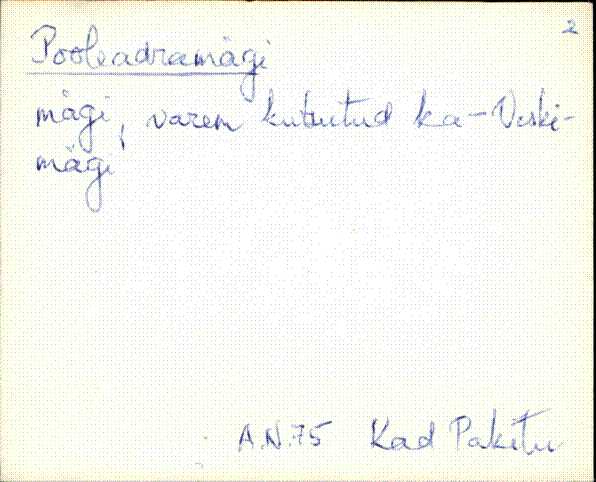 2
Pooleadramägi
mägi, varem kutsutud ka - Veski-
mägi
A.N.75 Kad Pakitu